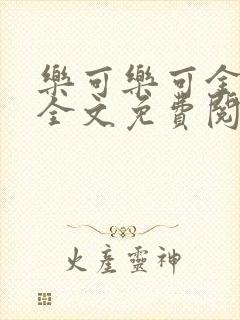 樂可樂可全
全文免費閱
火產靈神